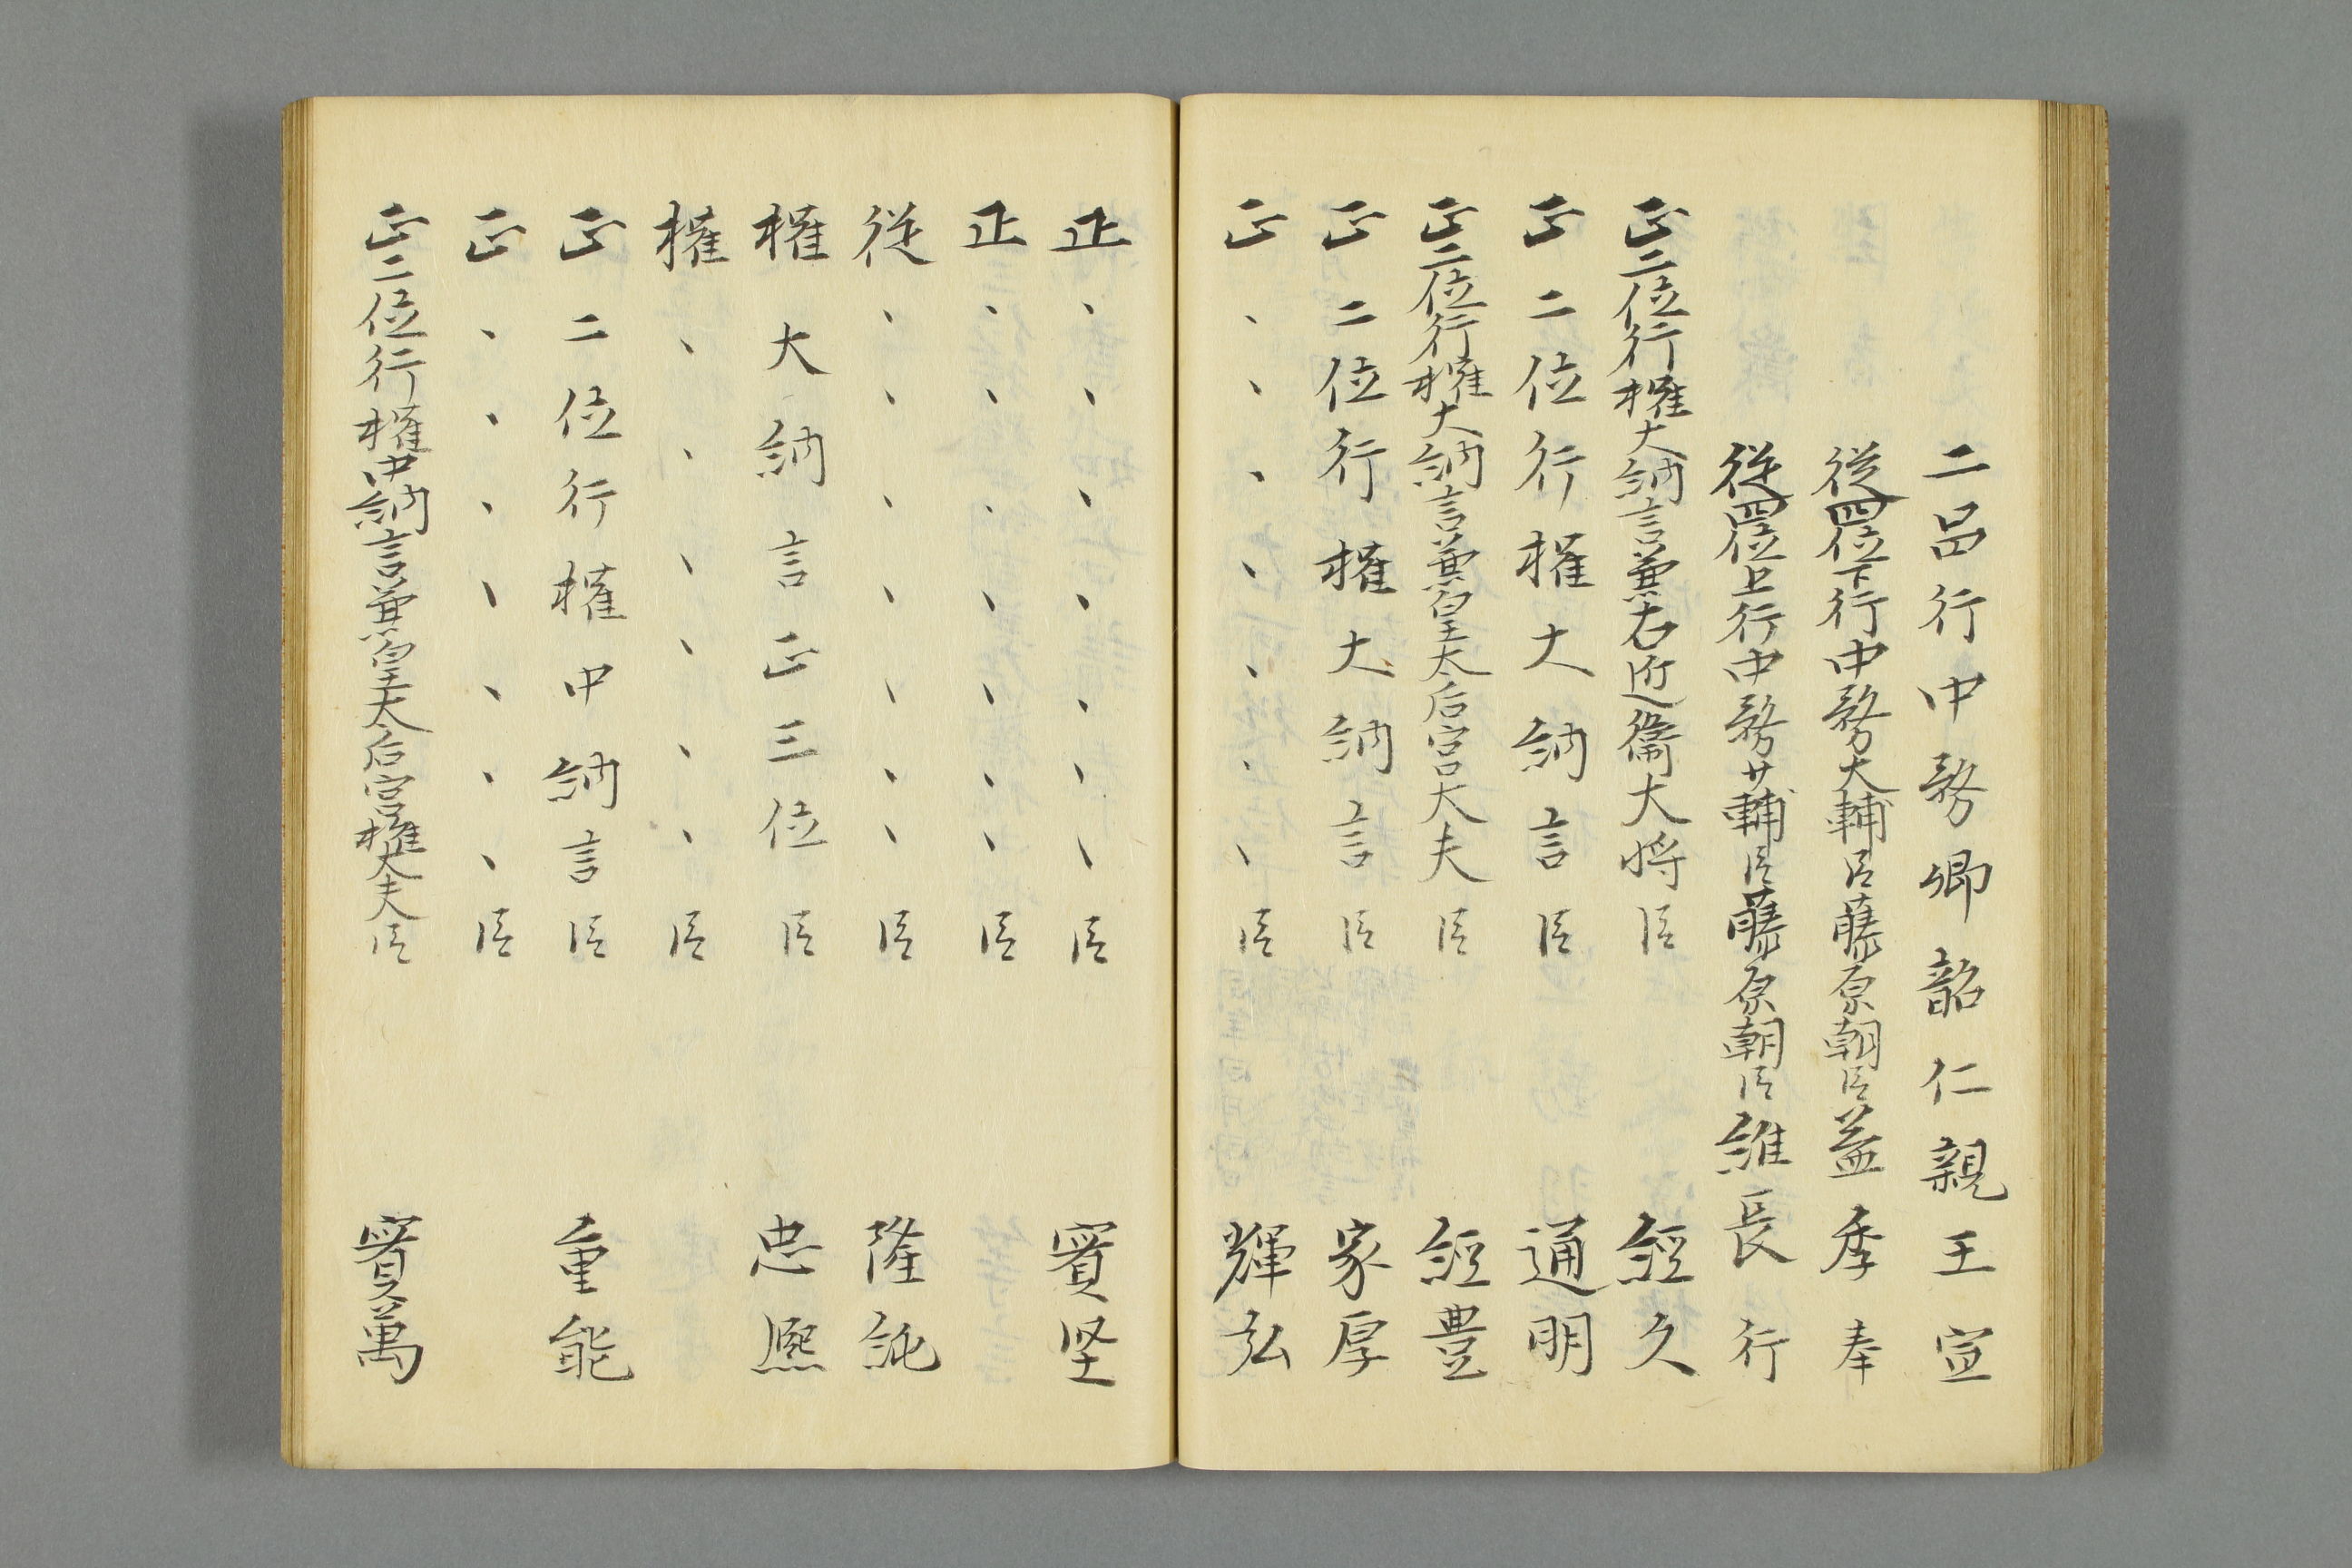 二品行中務卿韶仁親王宣
従四位下行中務大輔臣藤原朝臣益季奉
従四位上行中務少輔臣藤原朝臣維長行
正二位行権大納言兼右近衛大将臣 経久
正二位行権大納言臣 通明
正二位行権大納言兼皇太后宮大夫臣 経豊
正二位行権大納言臣 家厚
正、、、、、、臣 輝弘
正、、、、、、臣 實堅
正、、、、、、臣
従、、、、、、臣 隆純
権大納言正三位臣 忠熈
権、、、、、、臣
正二位行権中納言臣 重能
正、、、、、、、臣
正二位行権中納言兼皇太后宮権大夫臣 實萬